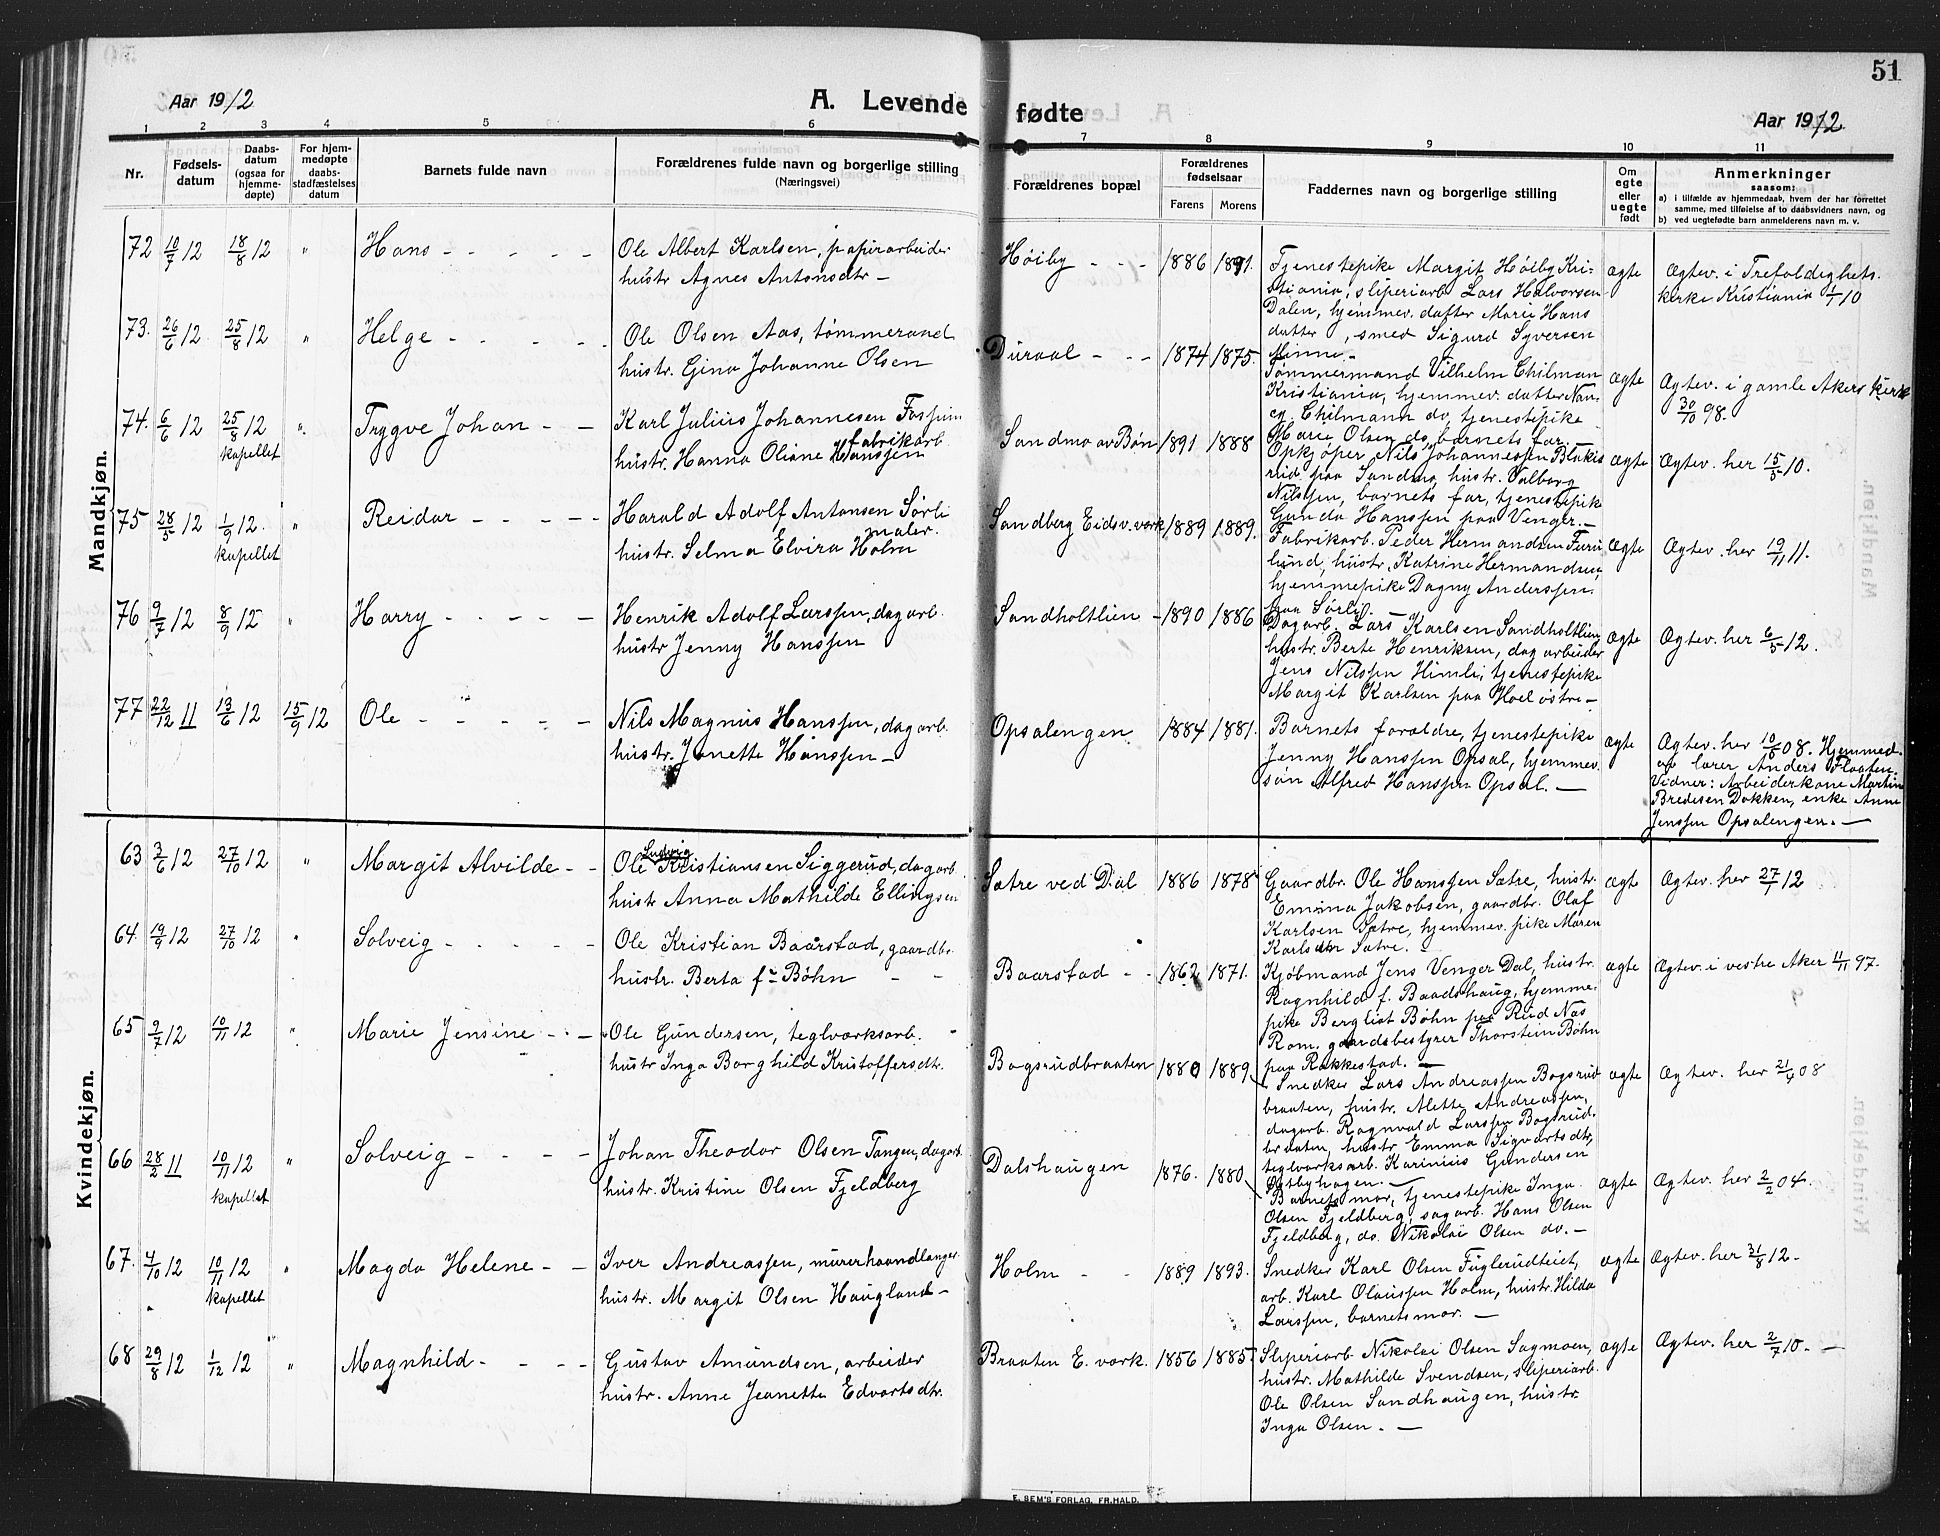 51
Aar 1912
A. Levende fødte
Aar 1912
1 2 3 4 5 6 7 8 9 10 11
Nr.
Fødsels-
datum
Daabs-
datum
(ogsaa for
hjemme-
døpte)
For hjem-
medøpte
daabs-
stadfæstelses
datum
Barnets fulde navn
Forældrenes fulde navn og borgerlige stilling
(Næringsvei)
Forældrenes bopæl
Forældrenes
fødselsaar
Farens Morens
Faddernes navn og borgerlige stilling
Om
egte
eller
uegte
født
Anmerkninger
saasom:
a) i tilfælde av hjemmedaab, hvem der har forrettet
samme, med tilføielse af to daabsvidners navn, og
b) ved uegtefødte barn anmelderens navn m. v.
Mandkjøn.
72 10/7 12 18/8 12 " Hans
Ole Albert Karlsen, papirarbeider
hustr Agnes Antonsdtr -
Høiby 1886 1891.
Tjenestepike Margit Høiby Kri-
stiania, sliperiarb Lars Halvorsen
Dalen, hjemmev. datter Marie Hans
datter, smed Sigurd Syversen
Minne.-
ægte
Ægtev. i Trefoldighets-
kirke Kristiania 1/1 10
73. 26/6 12 25/8 12 " Helge
Ole Olsen Aas, tømmermand
hustr. Gina Johanne Olsen
Duraal 1874 1875.
Tømmermand Vilhelm Chilman
Kristiania, hjemmev. datter Nan-
cy Chilmann do, tjenestepike
Marie Olsen do, barnets far.
ægte
Ægtev. i gamle Akers kirke
30/10 98.
74. 6/6 12 25/8 12 " Trygve Johan
kapellet
Karl Julius Johannesen Fossum
fabrikarb
hustr. Hanna Oliane Hanssen
Sandmo av Bøn 1891 1888
Opkjøper Nils Johannessen Blakis
rud paa Sandmo, hustr. Valborg
Nilssen, barnets far, tjenestepik
Gunda Hanssen paa Venger.-
ægte
Ægtev. her 15/5 10.
75 28/5 12 1/9 12. " Reidar
kapellet
Harald Adolf Antonsen Sørli
maler.
hustr. Selma Elvira Holm
Sandberg Eidsv. værk 1889 1889.
Fabrikarb. Peder Hermandsen Furu
lund, hustr. Katrine Hermandsen,
hjemmepike Dagny Anderssen
paa Sørli.
ægte
Ægtev. her 19/11 11.
76 9/7 12 8/9 12 " Harry
Henrik Adolf Larssen, dagarb.
hustr Jenny Hanssen
Sandholtlien 1890 1886
Dagarb. Lars Karlsen Sandholtlien
hustr. Berte Henriksen, dagarbeider
Jens Nilssen Himli, tjenestepike
Margit Karlsen paa Hoel østre-
ægte
Ægtev. her 6/5 12.
77 22/12 11 13/6 12 15/9 12 Ole
Nils Magnus Hanssen, dagarb.
hustr. Jenette Hanssen -
Opsalengen 1884 1881.
Barnets forældre, tjenestepike
Jenny Hanssen Opsal, hjemmev.
søn Alfred Hanssen Opsal. -
ægte
Ægtev. her 10/5 08. Hjemmed.
av lærer Anders Flaaten.
Vidner: Arbeiderkone Martin
Bredesen Dokken, enke Anne
Jenssen Opsalengen. -
Kvindekjøn.
63 3/6 12 27/10 12 " Margit Alvilde
Ludvig
Ole Kristiansen Siggerud, dagarb
hustr Anna Mathilde Ellingsen
Sætre ved Dal 1886 1878
Gaardbr. Ole Hanssen Sætre, hustr.
Emina Jakobsen, gaardbr. Olaf
Karlsen Sætre, hjemmev. pike Maren
Karlsdtr Sætre. -
ægte
Ægtev. her 27/1 12
64. 19/9 12 27/10 12 " Solveig
Ole Kristian Baarstad, gaardbr.
hustr. Berta f. Bøhn
Baarstad 1862 1871.
Kjøbmand Jens Venger Dal, hustr.
Ragnhild f. Baadshaug, hjemme-
pike Bergliot Bøhn paa Rud Nas
Rom. gaardsbestyrer Thorstein Bøhn
paa Rakkestad. -
ægte
Ægtev. i vestre Aker 11/11 97.
65 9/7 12 10/11 12 " Marie Jensine
Ole Gundersen, teglværksarb.
hustr Inga Borghild Kristoffersdtr.
Bogsrudbraaten 1880 1889
Snedker Lars Andreassen Bogsrud
braaten, hustr. Alette Andreassen,
dagarb. Ragnvald Larssen Bogsrud-
braaten, hustr. Emma Sigvartsdtr,
teglværksarb. Karinius Gundersen
Østbyhagen. -
ægte
Ægtev. her 21/4 08
66 28/2 11 10/11 12 " Solveig
kapellet
Johan Theodor Olsen Tangen, dagarb.
hustr. Kristine Olsen Fjeldberg
Dalshaugen 1876. 1880
Barnets mor, tjenestepike Inga
Olsen Fjeldberg, sagarb. Hans Olsen
Fjeldberg, do. Nikolai Olsen do. -
ægte
Ægtev. her 2/2 04.
67. 4/10 12 10/11 12 " Magda Helene
kapellet
Iver Andreassen, murerhaandlanger
hustr. Margit Olsen Haugland -
Holm 1889 1893.
Snedker Karl Olsen Fuglerudteiet,
arb. Karl Olaussen Holm, hustr. Hilda
Larssen, barnets mor. -
ægte
Ægtev. her 31/8 12-
68 29/8 12 1/12 12 " Magnhild
Gustav Amundsen, arbeider
hustr. Anne Jeanette Edvartsdtr.
Braaten E. værk. 1856 1885
Sliperiarb Nikolai Olsen Sagmoen,
hustr. Mathilde Svendsen, sliperiarb.
Ole Olsen Sandhaugen, hustr.
Inga Olsen. -
ægte
Ægtev. her 2/7 10. -
E. SEM'S FORLAG, FR.HALD.